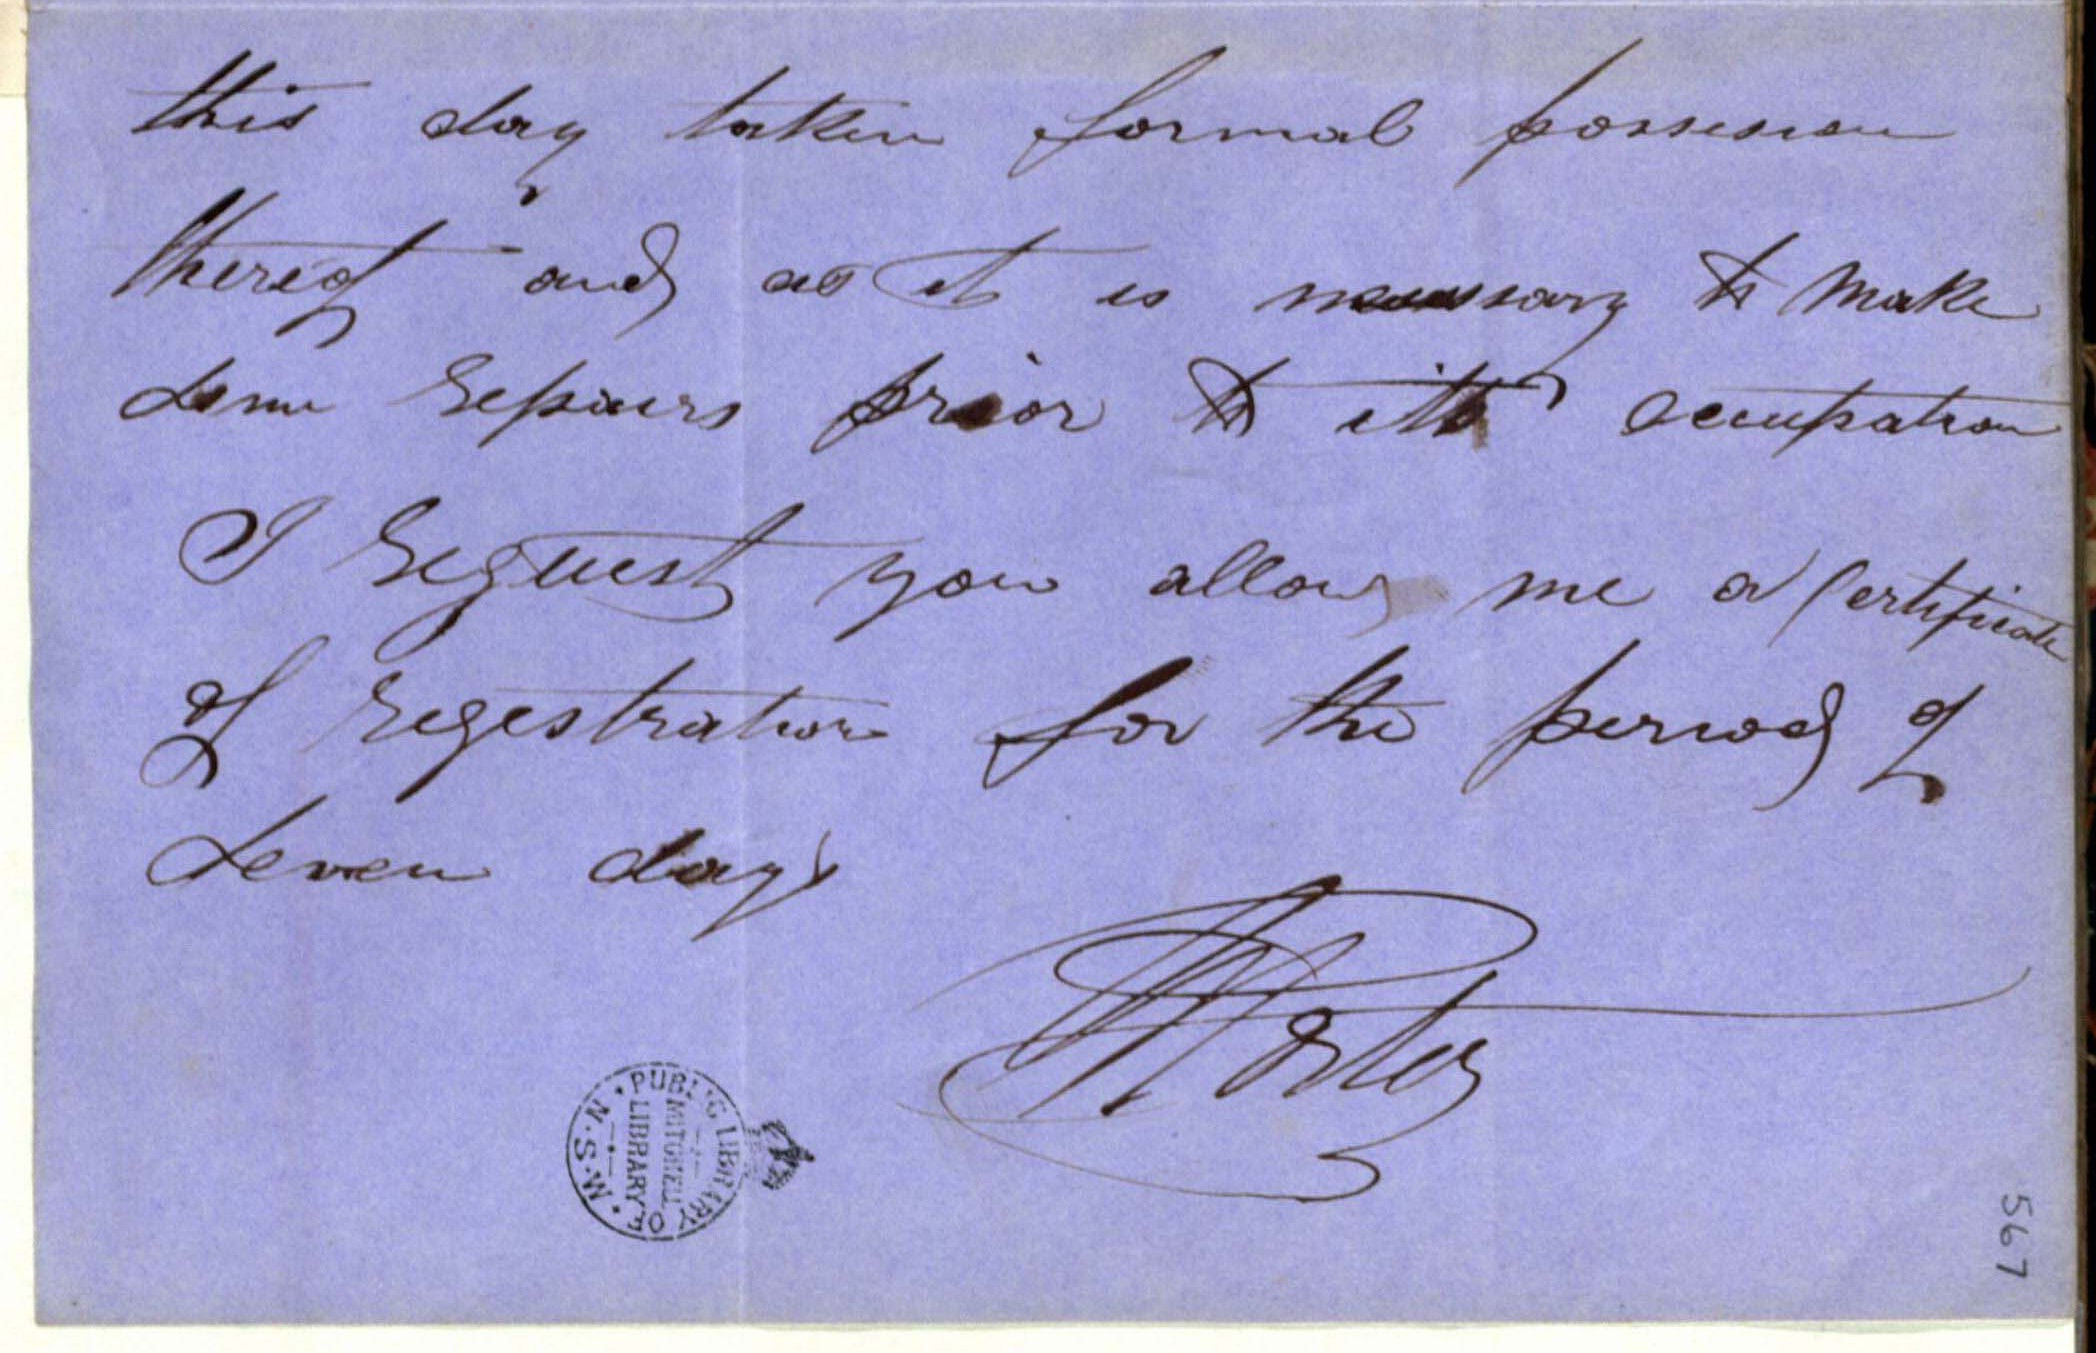 this day taken formal possession
thereof and as it is necessary to make
some repairs prior to its occupation
I request you allow me a Certificate
of regestration for the period of
seven days
Foster
PUBLIC LIBRARY OF N.S.W.
MITCHELL
LIBRARY
567